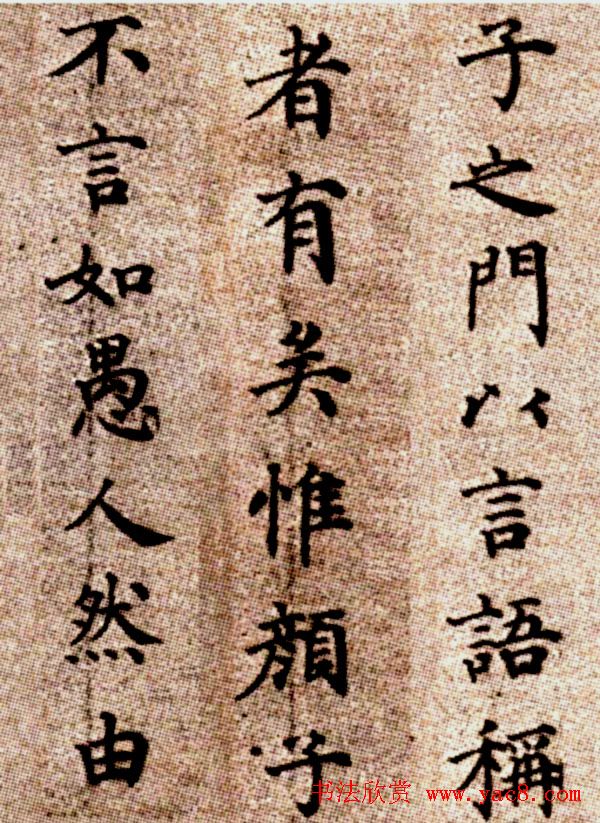 子之門以言語稱
者有矣惟顏子
不言如愚人然由
书法欣赏 www.yac8.com